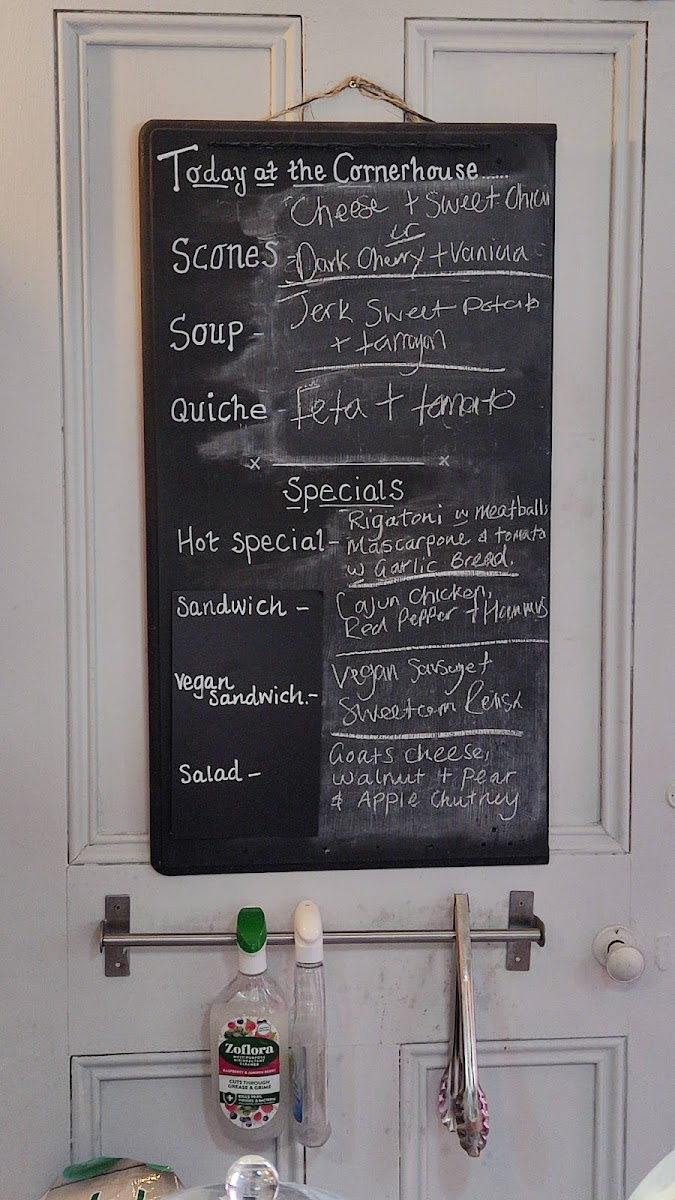 Today at the Cornerhouse......
Cheese + Sweet Chilli
or
Scones - Dark Cherry + Vanilla
Soup - Jerk Sweet Potato
+ tarragon
Quiche - Feta + tomato
x x
Specials
Hot special - Rigatoni w meatballs
Mascarpone & tomato
w Garlic Bread.
Sandwich - Cajun Chicken,
Red Pepper + Hummus
Vegan Vegan Sausage +
Sandwich.- Sweetcorn Relish
Salad - Goats cheese,
Walnut + pear
& Apple Chutney
Zoflora
MULTI-PURPOSE
DISINFECTANT
CLEANER
CUTS THROUGH
GREASE & GRIME